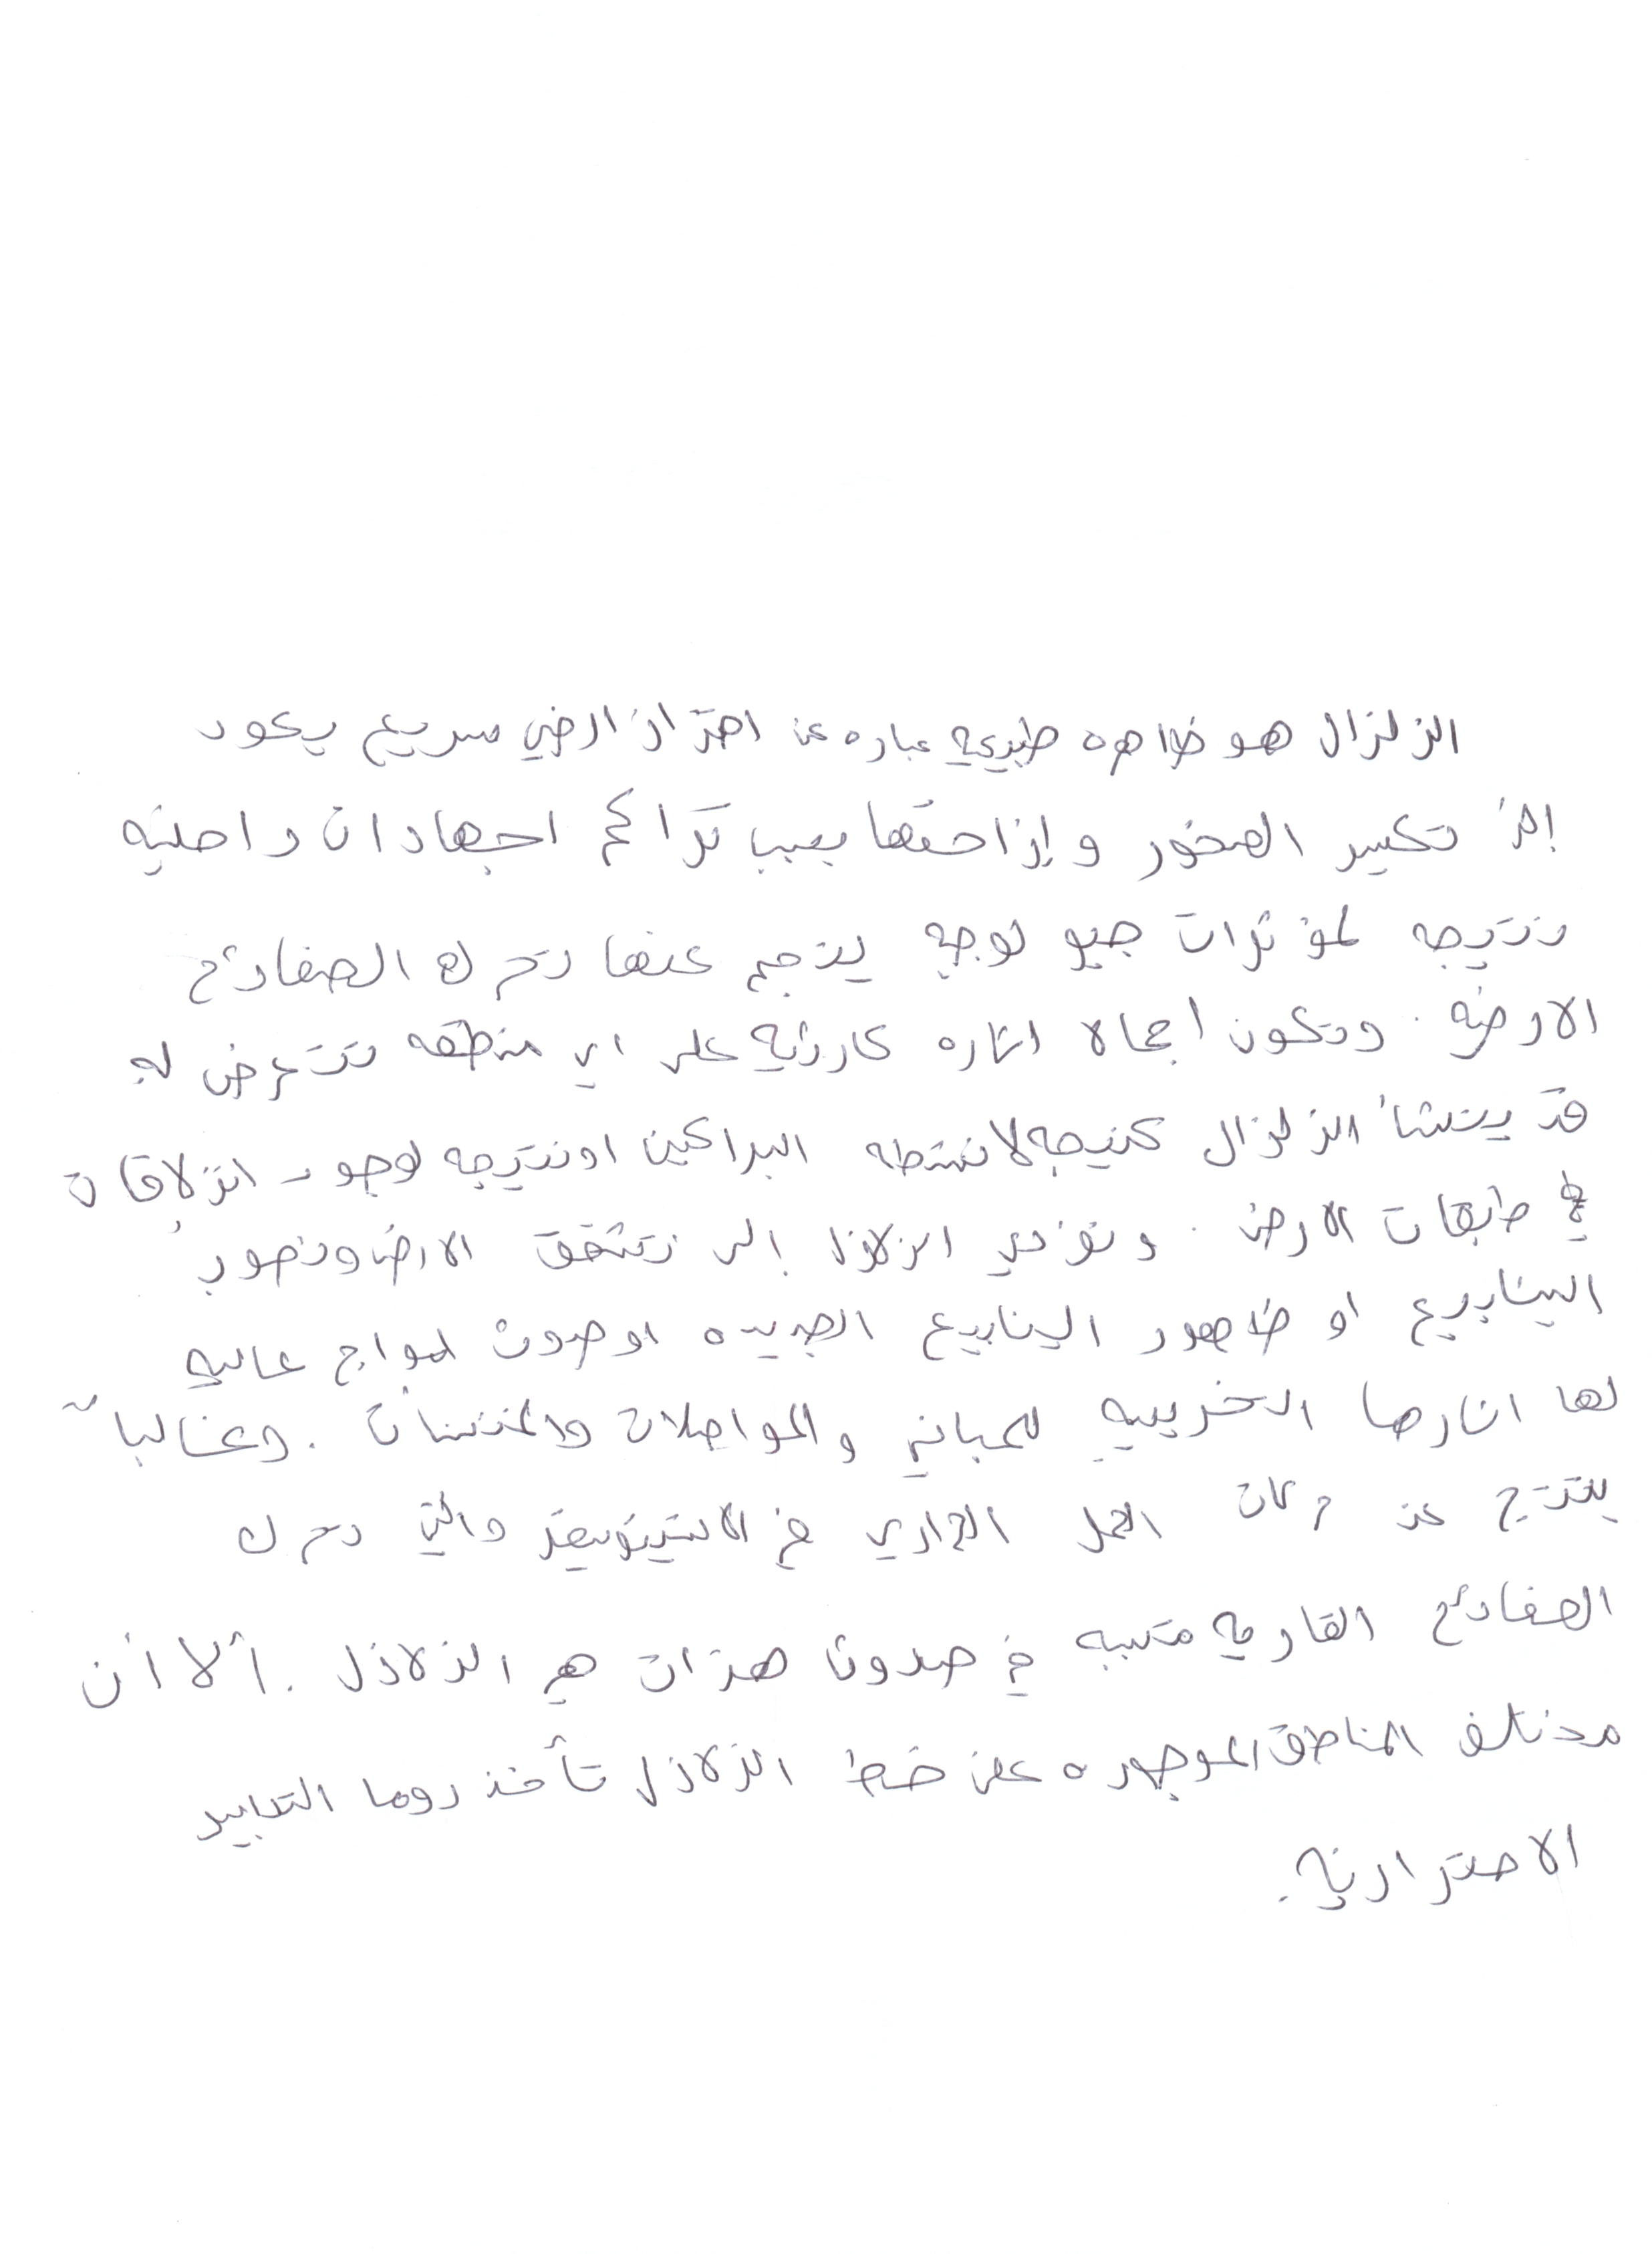 الزلزال هو ظاهره طبيعيه عباره عن اهتزاز ارضي سريع يعود
إلى تكسير الصخور وإزاحتها بسبب تراكم اجهادات داخليه
نتيجه لمؤثرات جيولوجيه ينجم عنها تحرك الصفائح
الارضيه . وتكون اثاره كارثيه على اي منطقه تتعرض له
قد ينشأ الزلزال كنتيجه لانشطه البراكين او نتيجه لوجود انزلاقات
في طبقات الارض . وتؤدي الزلازل إلى تشقق الارض ونضوب
الينابيع او ظهور الينابيع الجديده او حدوث امواج عاليه
لها اثارها التخريبيه للمباني والمواصلات والمنشئات . وغالباً
ينتج عن حركات الحمل الحراري في والتي تحرك
الصفائح القاريه متسببه في حدوث هزات هي الزلازل . ألا أن
مختلف المناطق الموجوده على خط الزلازل تأخذ دوما التدابير
الاحترازيه .